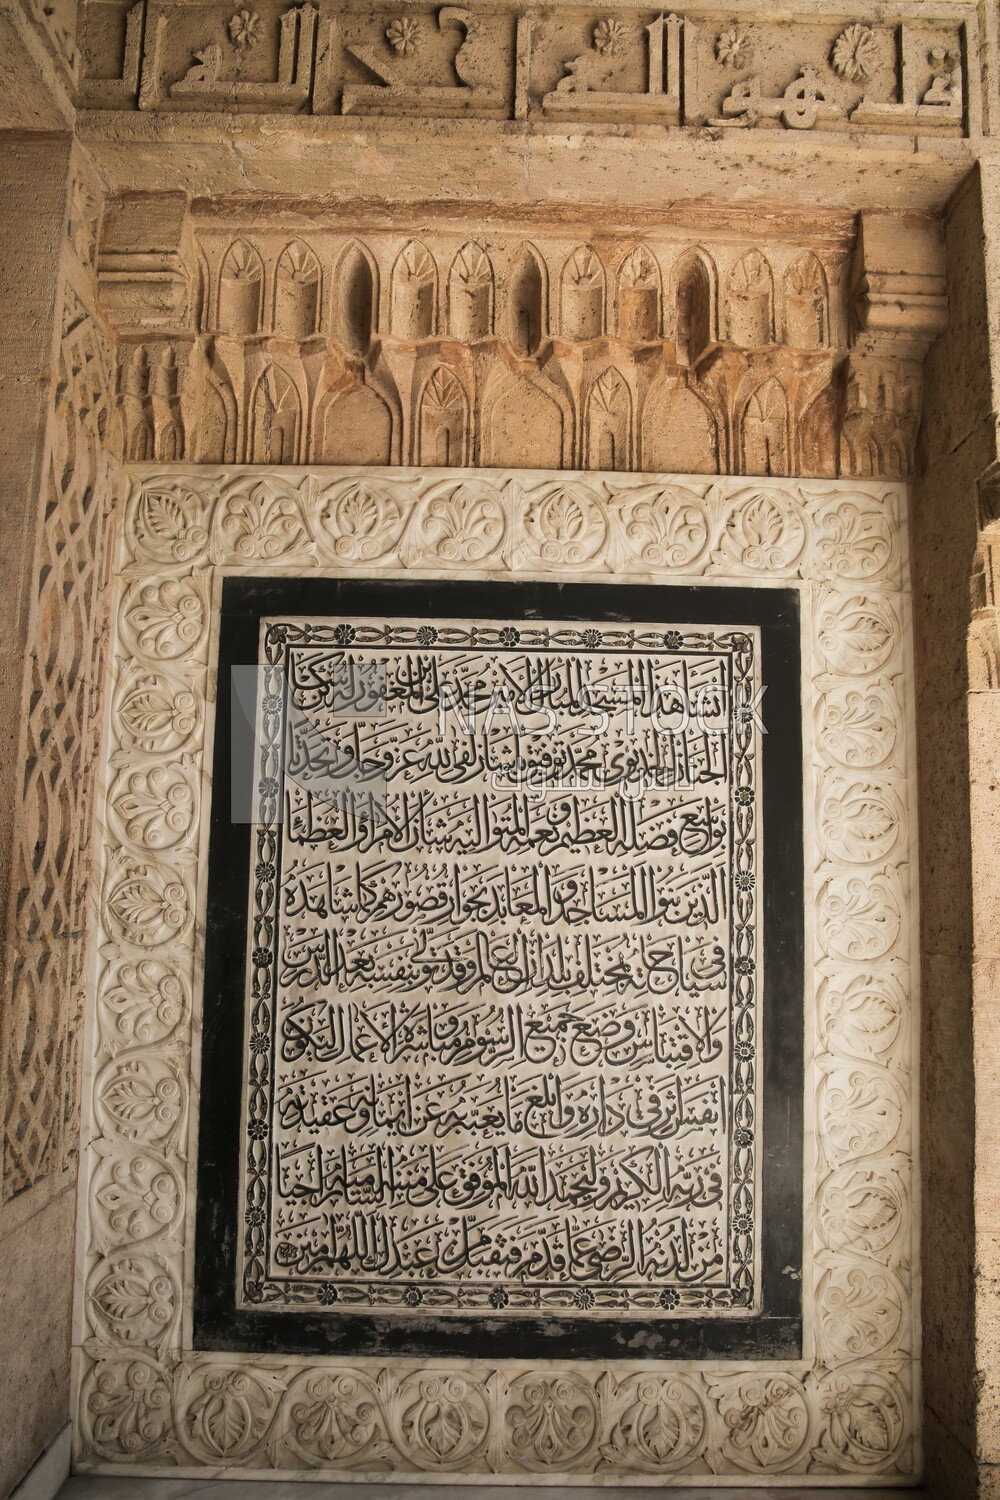 قل هو الله احد الله
أنشأ هذا المسجد المبارك الأمير محمد على ابن المغفور له
محمد توفيق الله عز وجل
فضله العظيم ونعمه المتوالية شأن الأمراء والعظماء
الذين بنوا المساجد والمعابد بجوار قصورهم كما شاهده
في سياحاته بمختلف بلدان العالم وقد تولى بنفسه بعد الدرس
والاقتباس وضع جميع الرسوم ومباشرة الأعمال ليكون
أنفس أثر في داره وأبلغ ما يعبر به عن إيمانه وعقيدته
في ربه الكريم وليحمد الله الموفق على
من لدنه الرضى عما قدم فتقبل من عبدك اللهم آمين
NAS STOCK
ناس ستوك